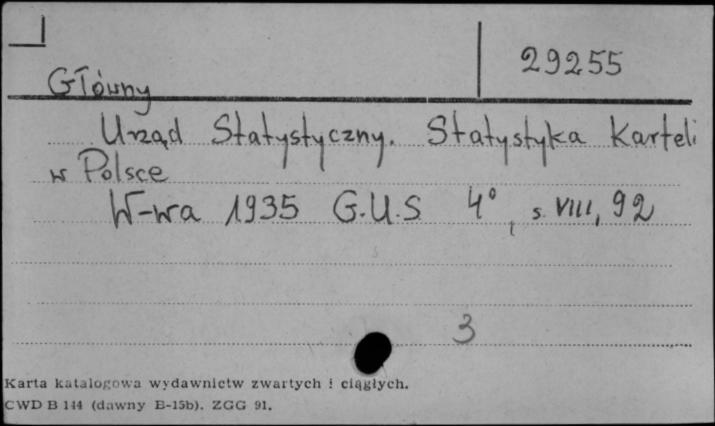 29255
Główny
Urząd Statystyczny. Statystyka Karteli
w Polsce
W-wa 1935 G.U.S 4°, s. VIII, 92
3
Karta katalogowa wydawnictw zwartych i ciągłych.
CWD B 144 (dawny B-15b). ZGG 91.